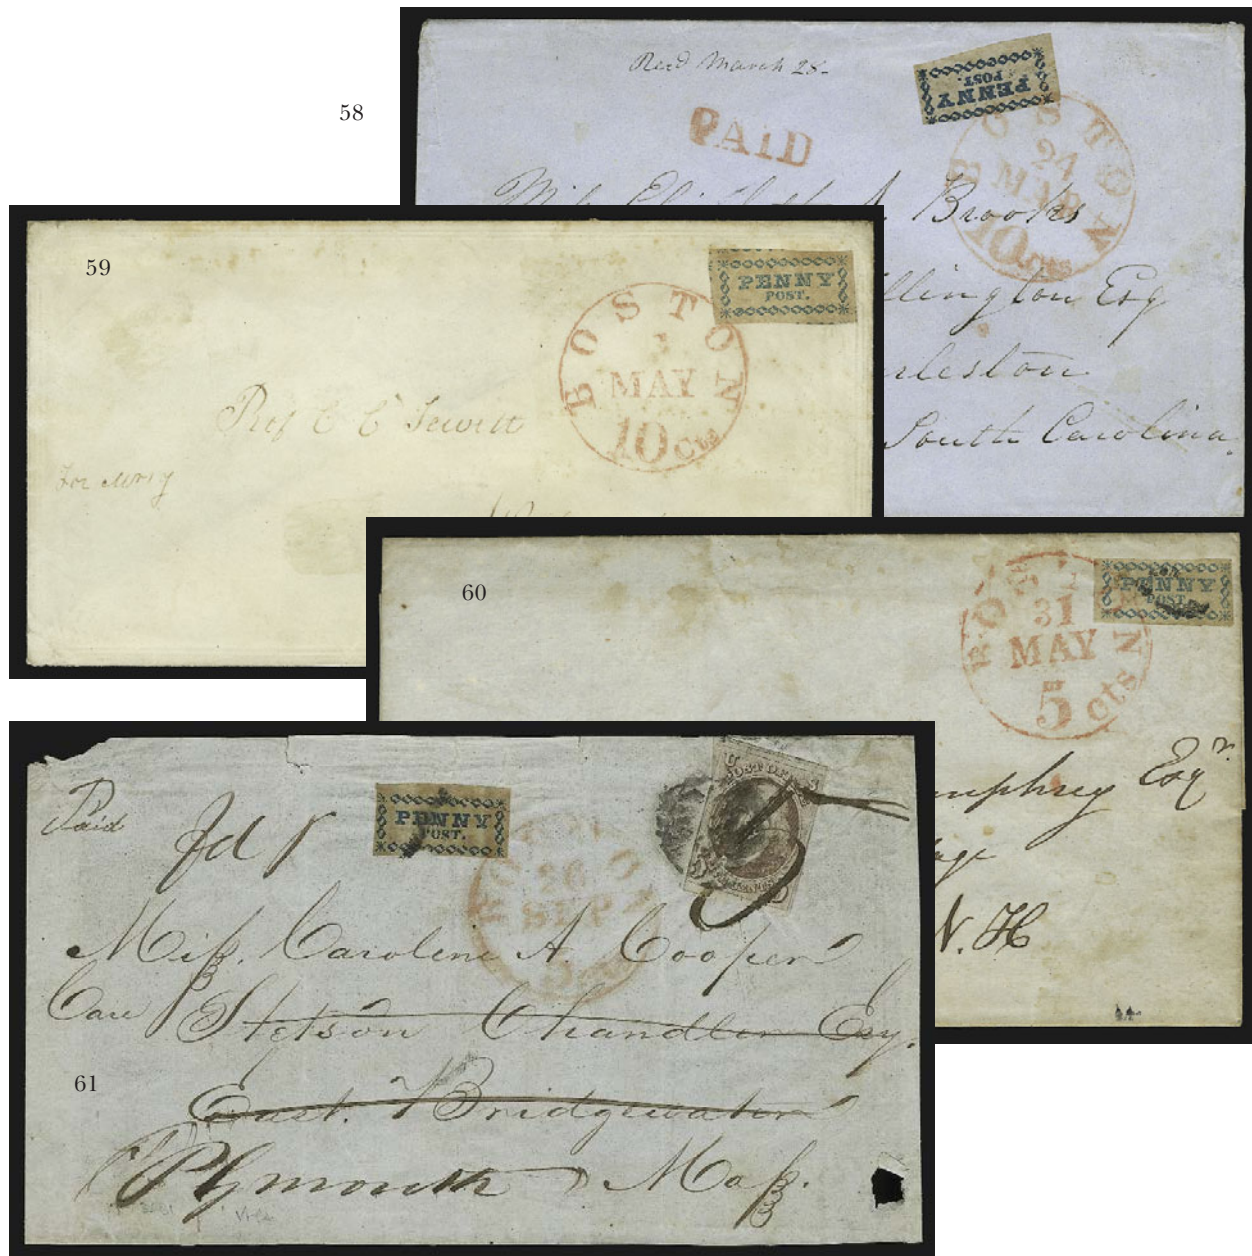 58
Recd March 28-
PENNY
POST.
PAID
BOSTON
24
MAR
10 cts
Brooks
llington Esq
rleston
South Carolina
59
PENNY
POST.
BOSTON
MAY
10 Cts
Prof C C Jewett
60
PENNY
POST.
BOSTON
31
MAY
5 cts
mphrey Esqr
age
N. H
Paid
PENNY
POST.
POST OFFICE
26
SEP
5
Miss. Caroline A. Cooper
Care Stetson Chandler Esq.
61
East. Bridgewater
Plymouth Mass.